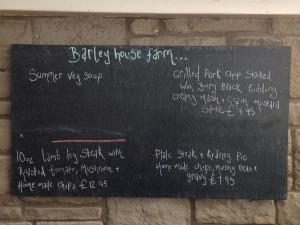 Barley house farm...
Summer veg soup
Grilled Pork Chop Stacked
With Bury Black Pudding
creamy Mash + Grain Mustard
Sauce £7.95
10oz lamb leg Steak with
Roasted tomato, Mushroom +
Home made chips £12.95
Plate Steak + Kidney Pie
Home made chips, Mushy Peas +
gravy £7.95